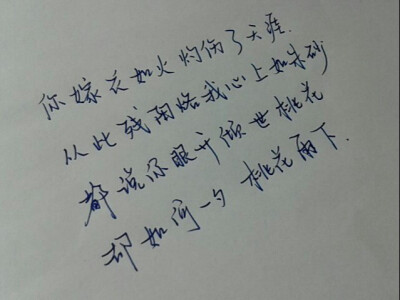 你嫁衣如火灼伤了天涯.
从此残阳烙我心上如朱砂
都说你眼中倾世桃花
却如何一夕桃花雨下.